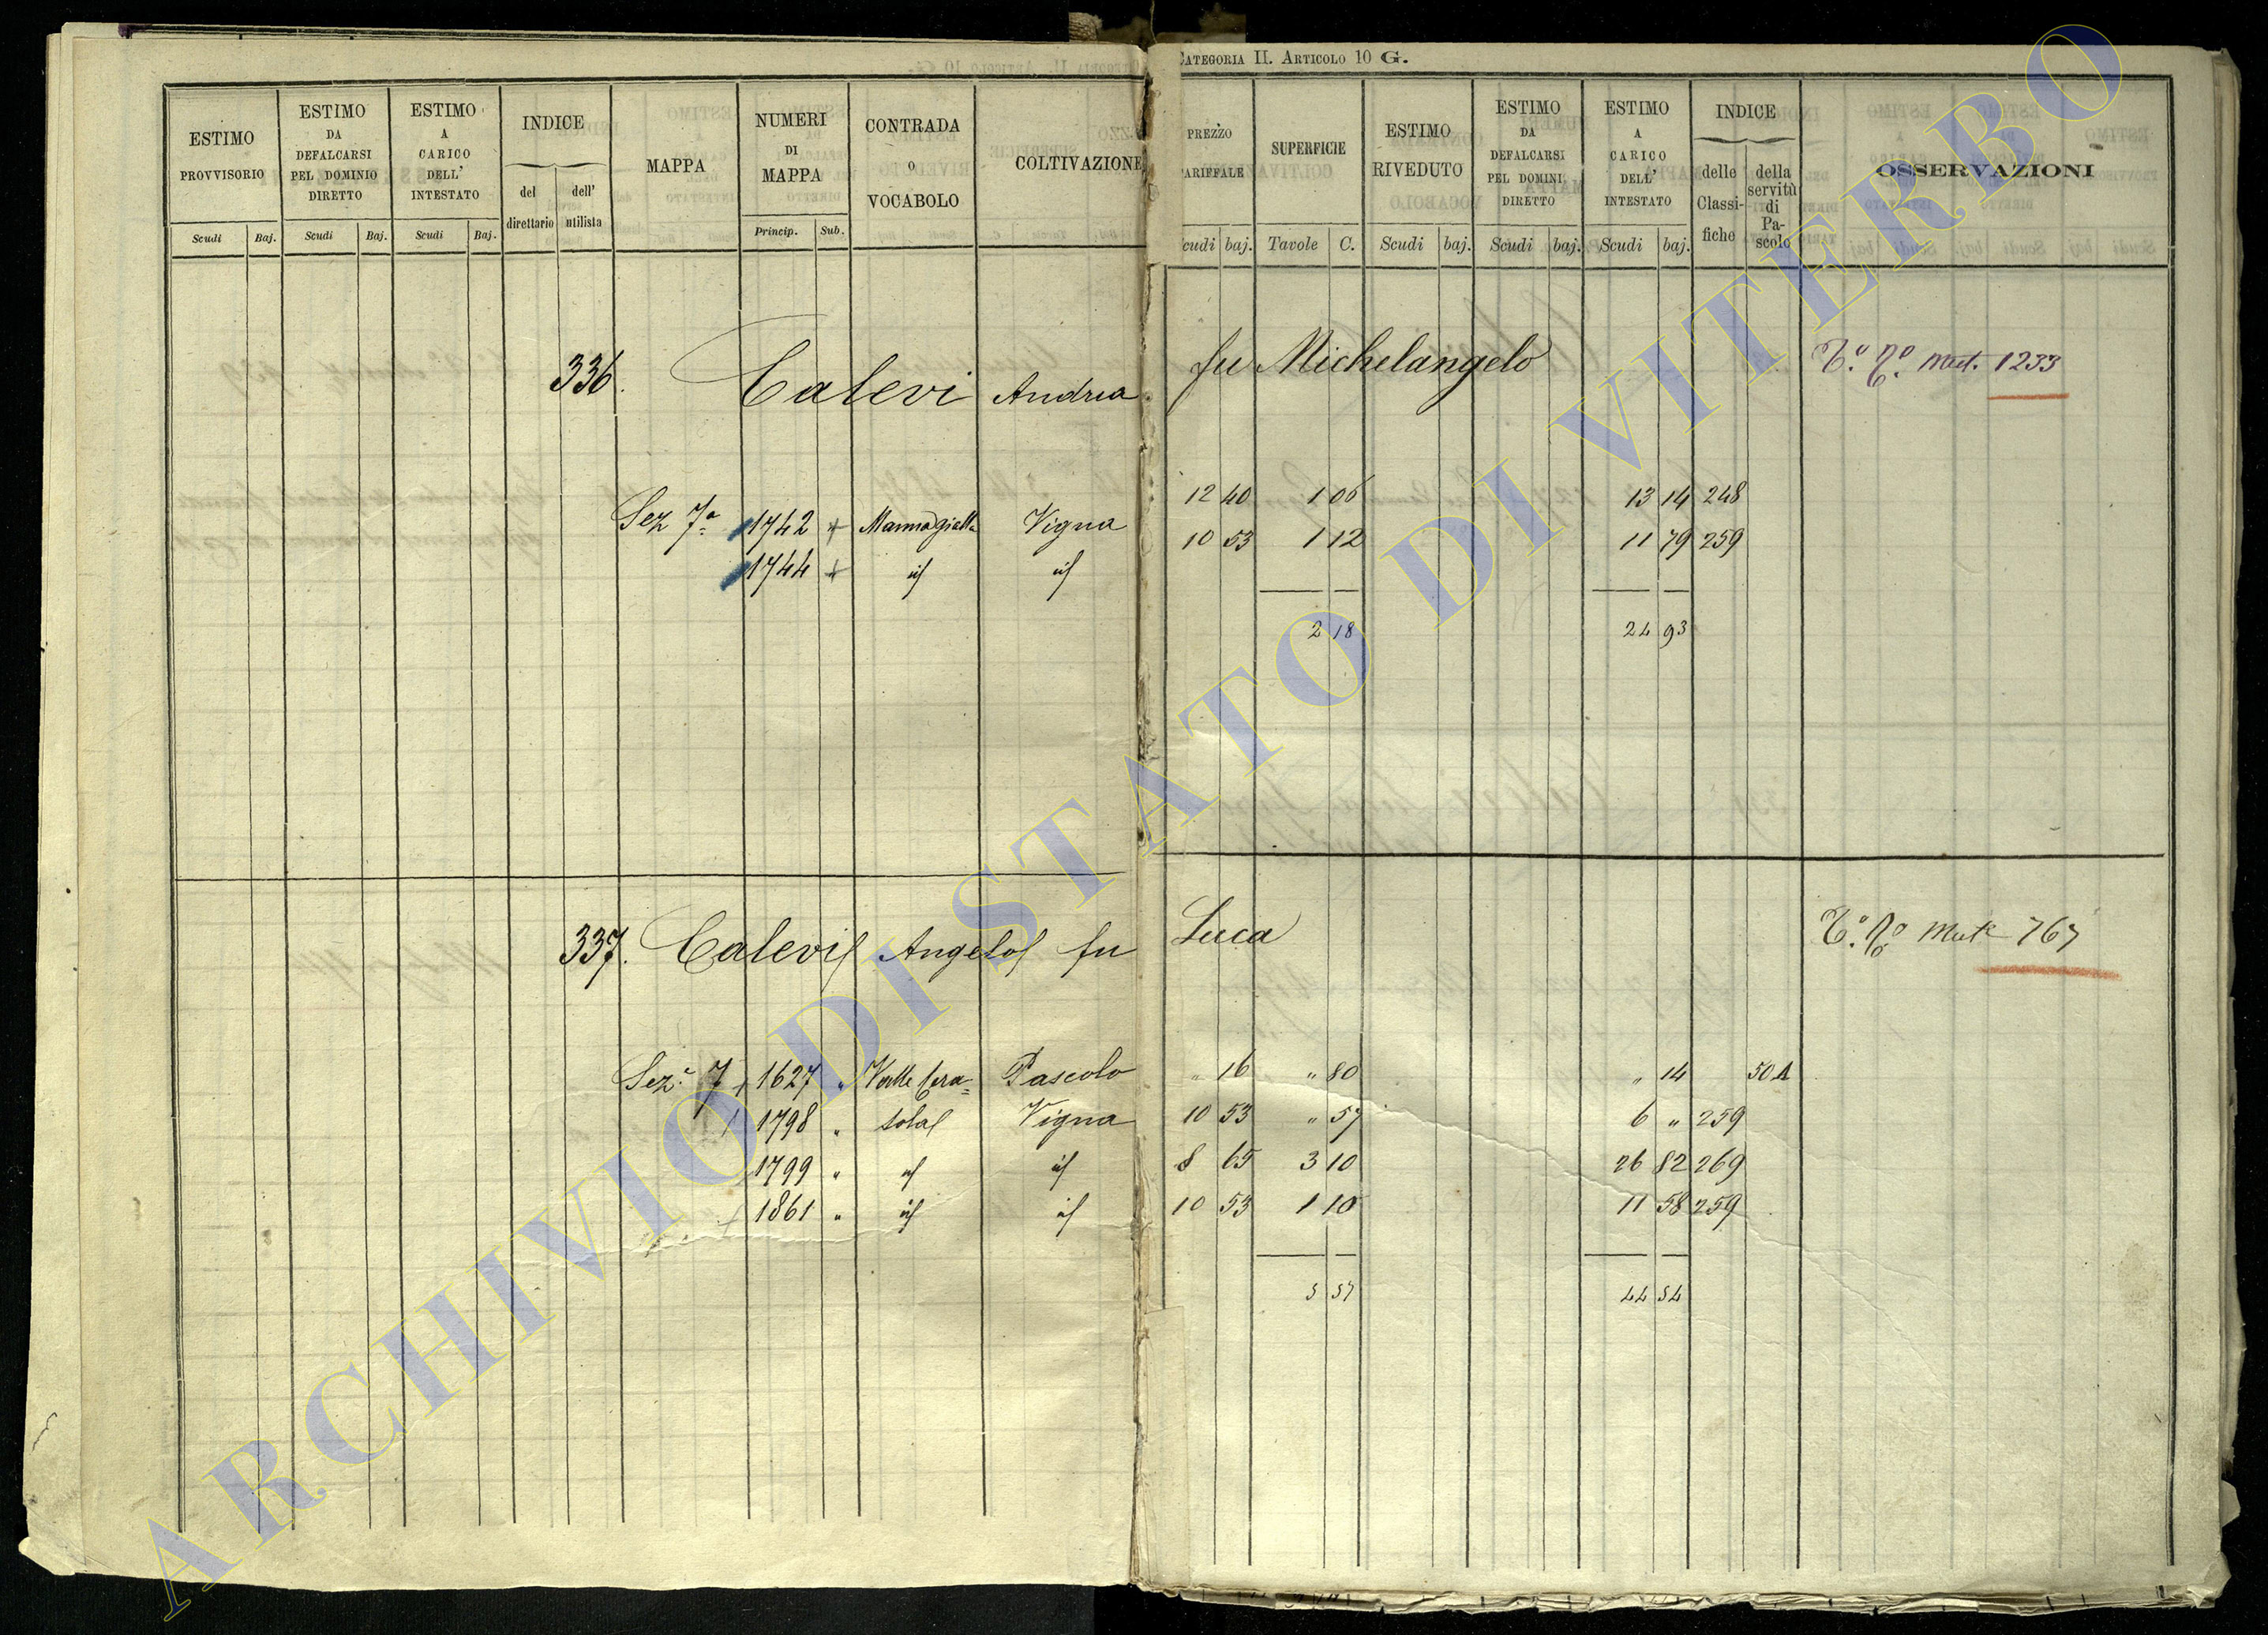 CATEGORIA II. ARTICOLO 10 G.
ESTIMO PROVVISORIO
Scudi Baj.
ESTIMO DA DEFALCARSI PEL DOMINIO DIRETTO
Scudi Baj.
ESTIMO A CARICO DELL' INTESTATO
Scudi Baj.
INDICE
del direttario
dell' utilista
MAPPA
NUMERI DI MAPPA
Princip. Sub.
CONTRADA O VOCABOLO
COLTIVAZIONE
PREZZO ARIFFALE
cudi baj.
SUPERFICIE
Tavole C.
ESTIMO RIVEDUTO
Scudi baj.
ESTIMO DA DEFALCARSI PEL DOMINI DIRETTO
Scudi baj.
ESTIMO A CARICO DELL' INTESTATO
Scudi baj.
INDICE
delle Classi-fiche
della servitù di Pa-scolo
OSSERVAZIONI
336. Calevi Andrea fu Michelangelo
Mut. 1233
Sez 7a 1742 + Vigna 12 40 1 06 13 14 248
1744 + id id 10 53 1 12 11 79 259
2 18 24 93
337. Calevi Angelo fu Luca
Mut 767
Sez. 7 + 1627 " Valle Cera= Pascolo " 16 " 80 " 14 50A
1798 " sola Vigna 10 53 " 57 6 " 259
1799 " id id 8 65 3 10 26 82 269
+ 1861 " id id 10 53 1 10 11 58 259
5 57 44 54
ARCHIVIO DI STATO DI VITERBO